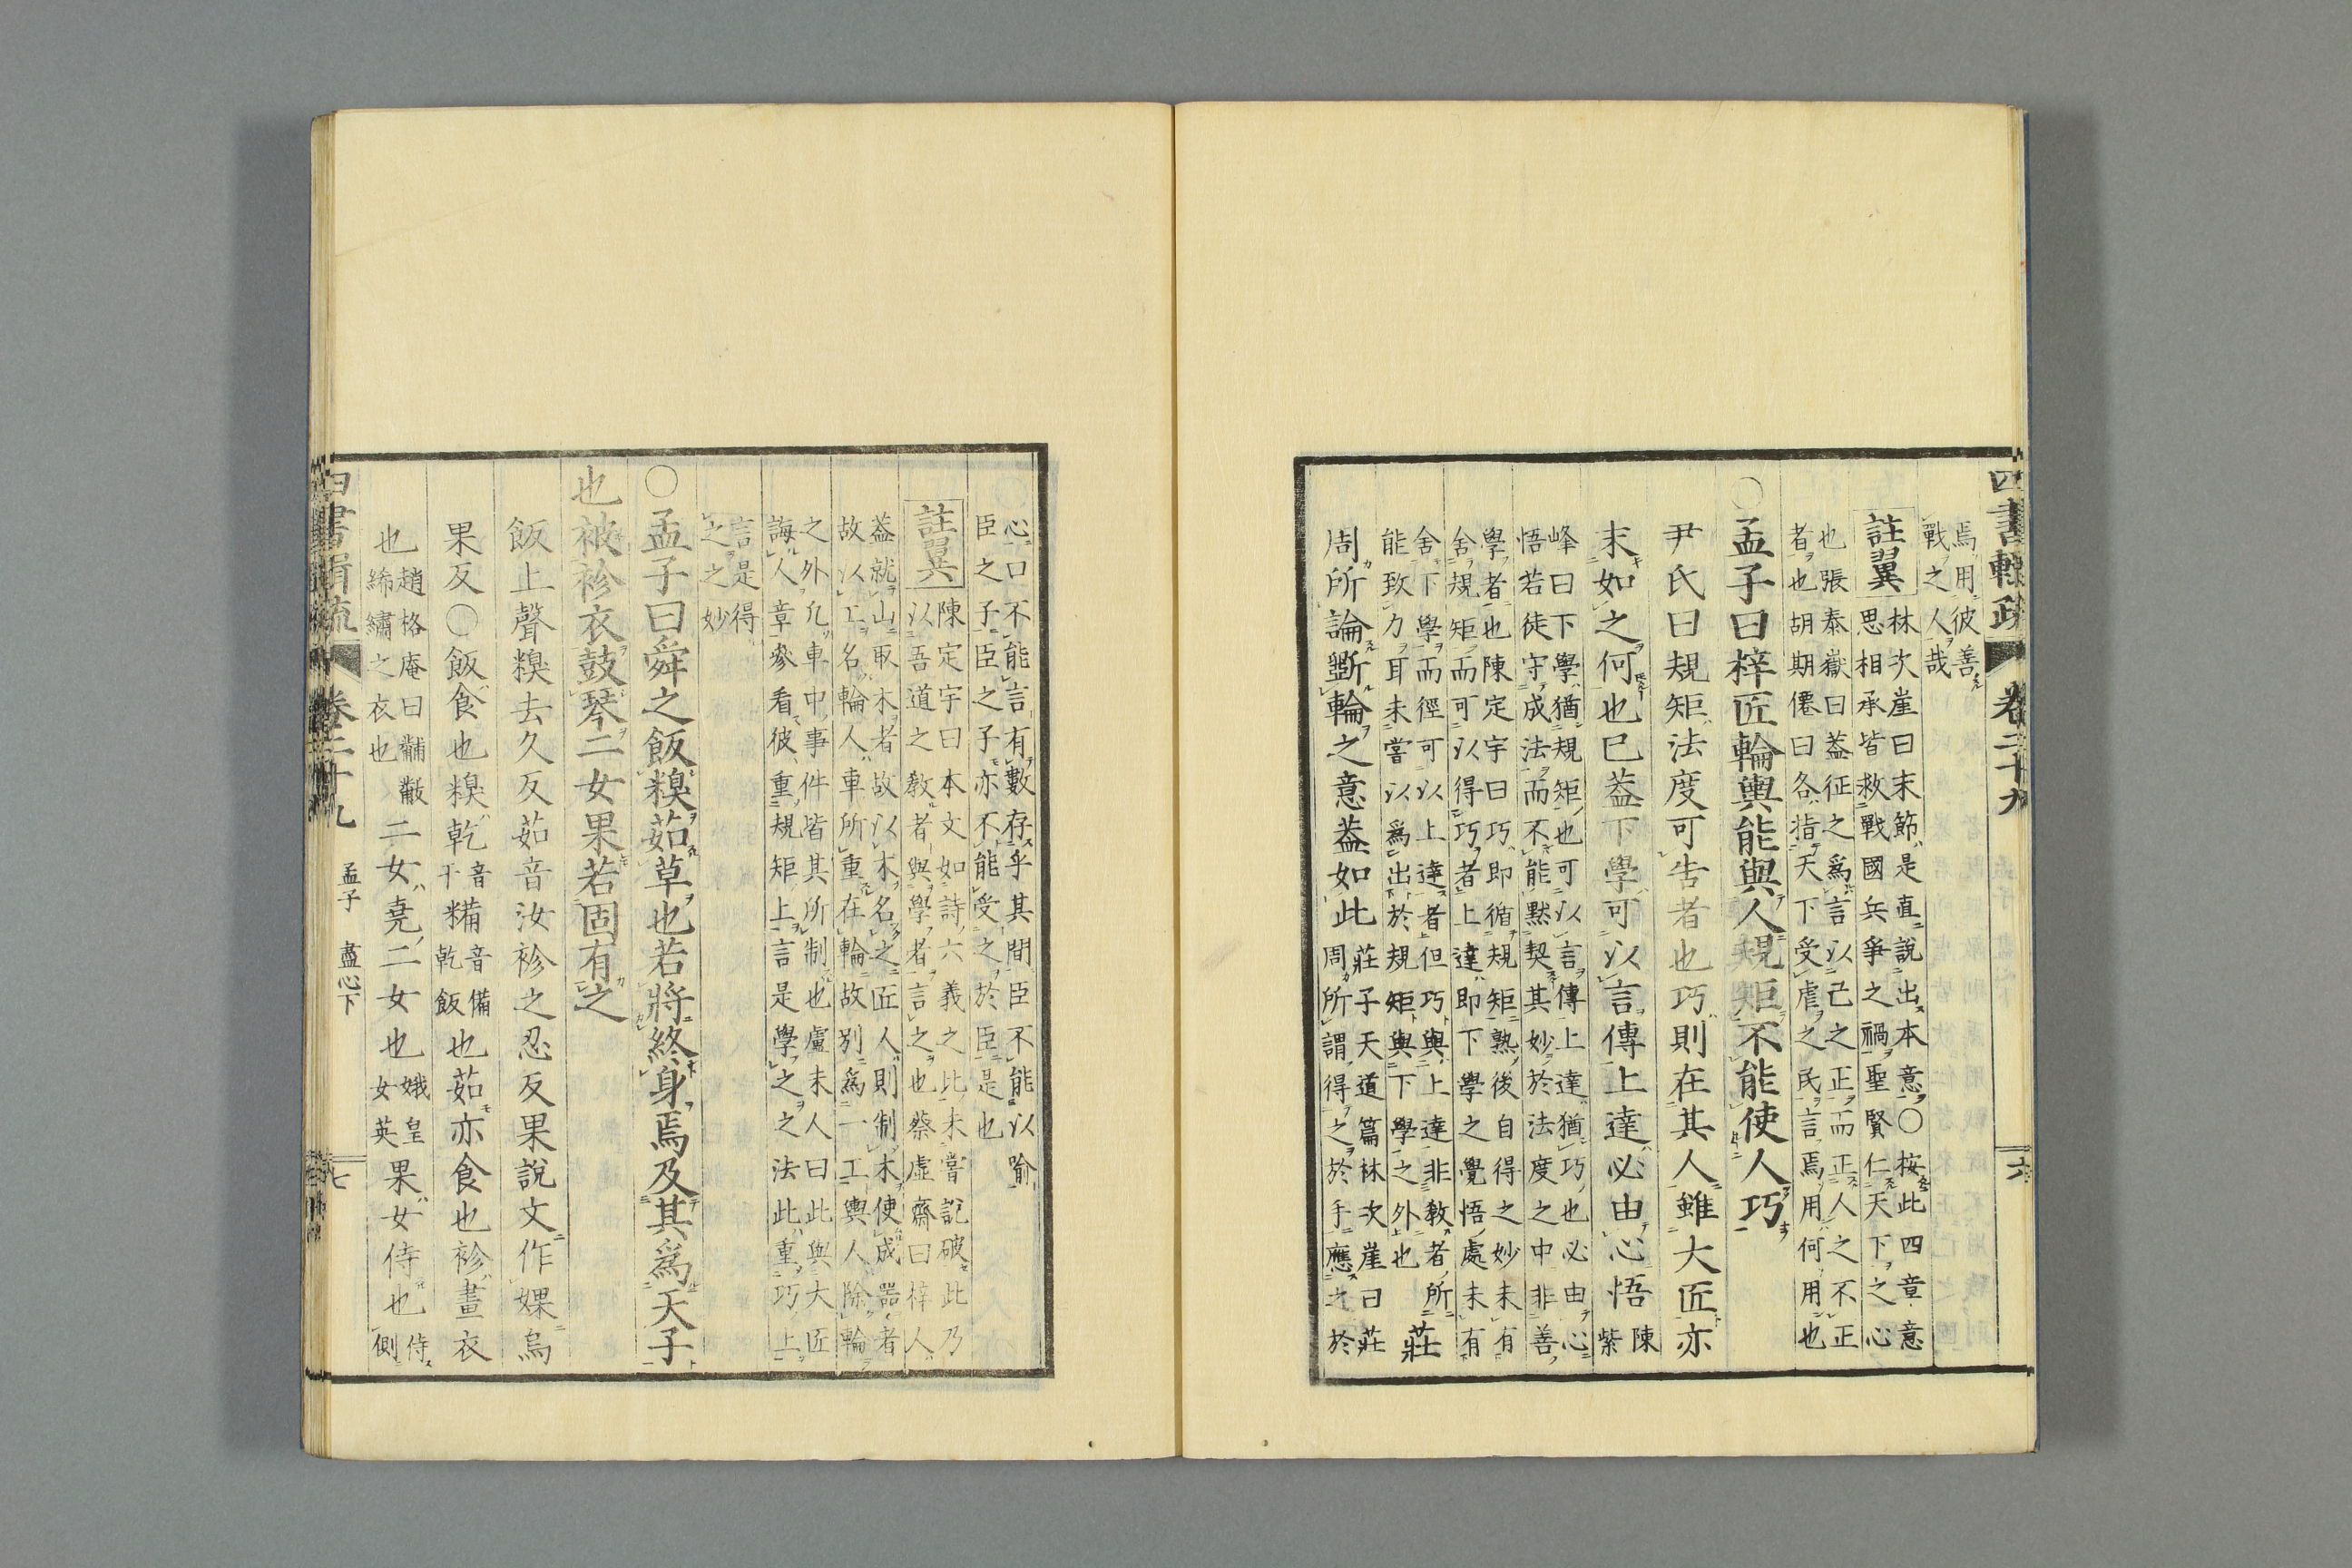 四書輯疏
卷二十九
六
焉用彼善
戰之人哉
註翼
林次崖曰末節是直說出本意〇按此四章意
思相承皆救戰國兵爭之禍聖賢仁天下之心
也張泰嶽曰蓋征之爲言以己之正而正人之不正
者也胡期僊曰各指天下受虐之民言焉用何用也
〇孟子曰梓匠輪輿能與人規矩不能使人巧
尹氏曰規矩法度可告者也巧則在其人雖大匠亦
末如之何也已蓋下學可以言傳上達必由心悟
陳紫
峰曰下學猶規矩也可以言傳上達猶巧也必由心
悟若徒守成法而不能默契其妙於法度之中非善
學者也陳定宇曰巧即循規矩熟後自得之妙未有
舍規矩而可以得巧者上達即下學之覺悟處未有
舍下學而徑可以上達者但巧與上達非教者所
能致力耳未嘗以爲出於規矩與下學之外也
莊
周所論斲輪之意蓋如此
莊子天道篇林次崖曰莊
周所謂得之於手應之於
心口不能言有數存乎其間臣不能以喻
臣之子臣之子亦不能受之於臣是也
註翼
陳定宇曰本文如詩六義之比未嘗說破此乃
以吾道之教者與學者言之也蔡虛齋曰梓人
蓋就山取木者故以木名之匠人則制木使成器者
故以工名輪人車所重在輪故別爲一工輿人除輪
之外凡車中事件皆其所制也盧未人曰此與大匠
誨人章參看彼重規矩上言是學之之法此重巧上
言是得
之之妙
〇孟子曰舜之飯糗茹草也若將終身焉及其爲天子
也被袗衣鼓琴二女果若固有之
飯上聲糗去久反茹音汝袗之忍反果說文作婐烏
果反〇飯食也糗乾
音干
糒
音備
乾飯
也茹亦食也袗畫衣
也
趙格庵曰黼黻
絺繡之衣也
二女堯二女也
娥皇
女英
果女侍也
侍
側
四書輯疏
卷二十九
孟子 盡心下
七